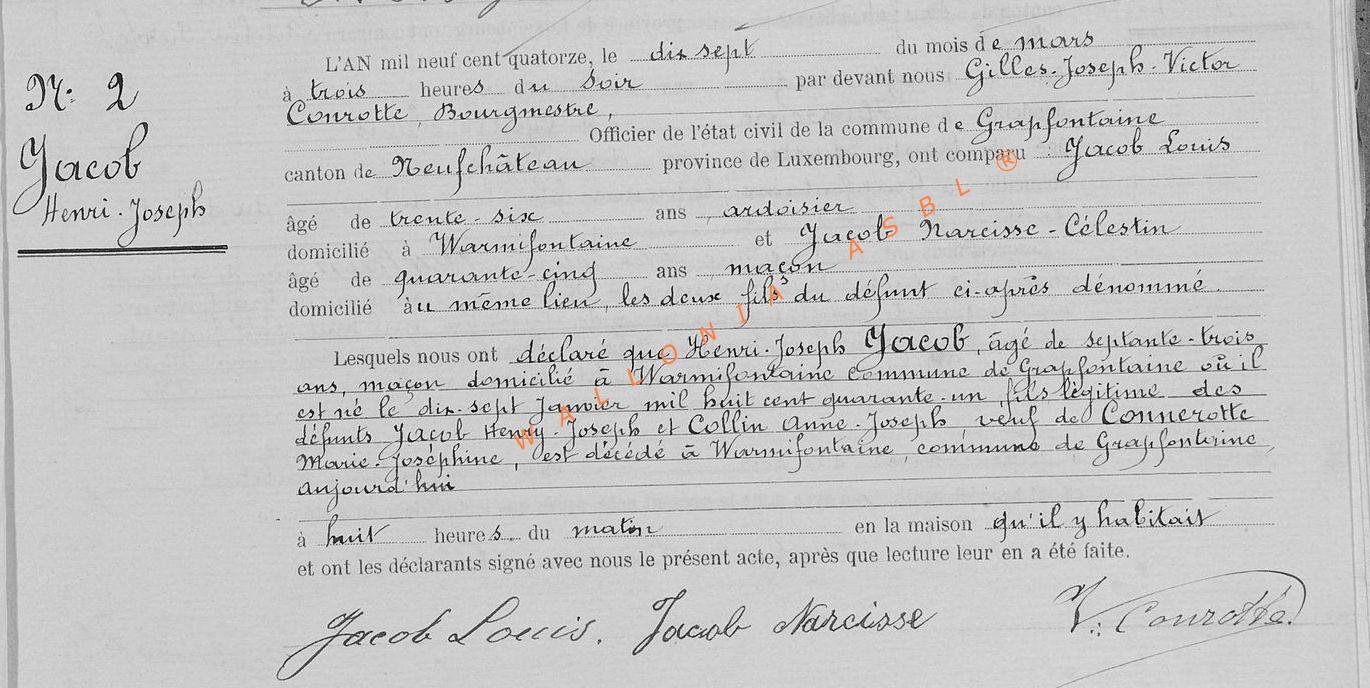 N: 2
Jacob
Henri-Joseph
L'AN mil neuf cent quatorze, le dix sept du mois de mars
à trois heures du soir par devant nous Gilles-Joseph-Victor
Conrotte, Bourgmestre,
Officier de l'état civil de la commune de Grapfontaine
canton de Neufchâteau province de Luxembourg, ont comparu : Jacob Louis
âgé de trente-six ans, ardoisier
domicilié à Warmifontaine et Jacob Narcisse-Célestin
âgé de quarante-cinq ans maçon
domicilié au même lieu, les deux fils du défunt ci-après dénommé.
Lesquels nous ont déclaré que Henri-Joseph Jacob, âgé de septante-trois
ans, maçon domicilié à Warmifontaine commune de Grapfontaine où il
est né le dix-sept Janvier mil huit cent quarante-un, fils légitime des
défunts Jacob Henry-Joseph et Collin Anne-Joseph, veuf de Connerotte
Marie-Joséphine, est décédé à Warmifontaine, commune de Grapfontaine,
aujourd'hui
à huit heures du matin en la maison qu'il y habitait
et ont les déclarants signé avec nous le présent acte, après que lecture leur en a été faite.
Jacob Louis. Jacob Narcisse V. Conrotte
WALLONIA ASBL ®